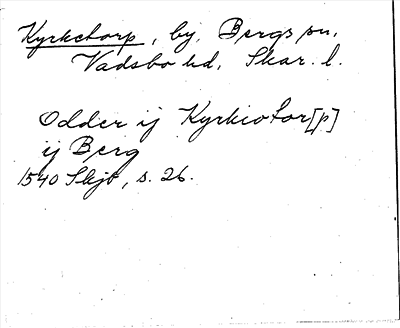 Kyrketorp, by, Bergs sn,
Vadsbo hd, Skar. l.
Odder ij Kyrkiotor[p]
ij Berg
1540 Skjb, s. 26.